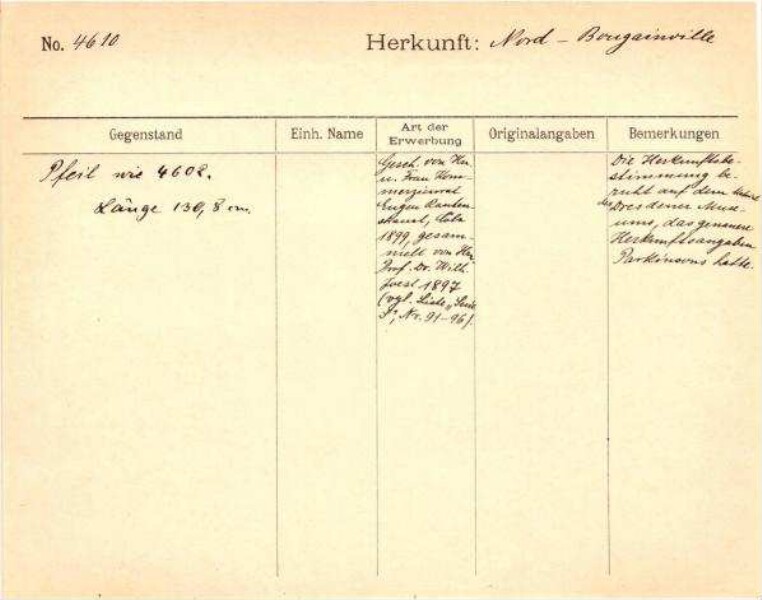 No. 4610 Herkunft: Nord - Bougainville
Gegenstand Einh. Name Art der Erwerbung Originalangaben Bemerkungen
Pfeil wie 4602.
Länge 130,8 cm.
Gesch. von Herrn
u. Frau Kom-
merzienrat
Eugen Rauten-
strauch, Cöln
1899, gesam-
melt von Herrn
Prof. Dr. Wilh.
Joest 1897
(vgl. Liste „Serie
Nr. 91-96).
Die Herkunftsbe-
stimmung be-
ruht auf dem
des Dresdener Muse-
ums, das genauere
Herkunftsangaben
Parkinsons hatte.